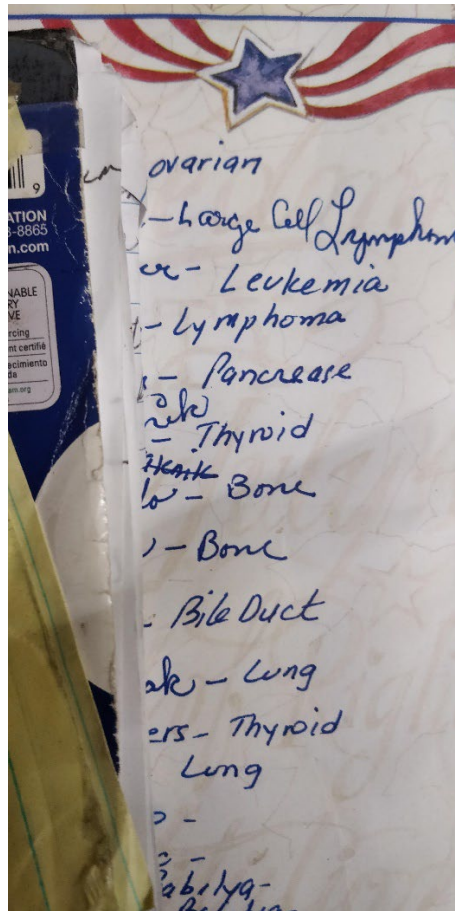 9
ATION
3-8865
n.com
NABLE
RY
VE
rcing
nt certifié
ecimiento
da
am.org
ovarian
- Large Cell Lymphom
er - Leukemia
- Lymphoma
- Pancrease
- Thyroid
- Bone
- Bone
- Bile Duct
ak - Lung
ers - Thyroid
Lung
-
-